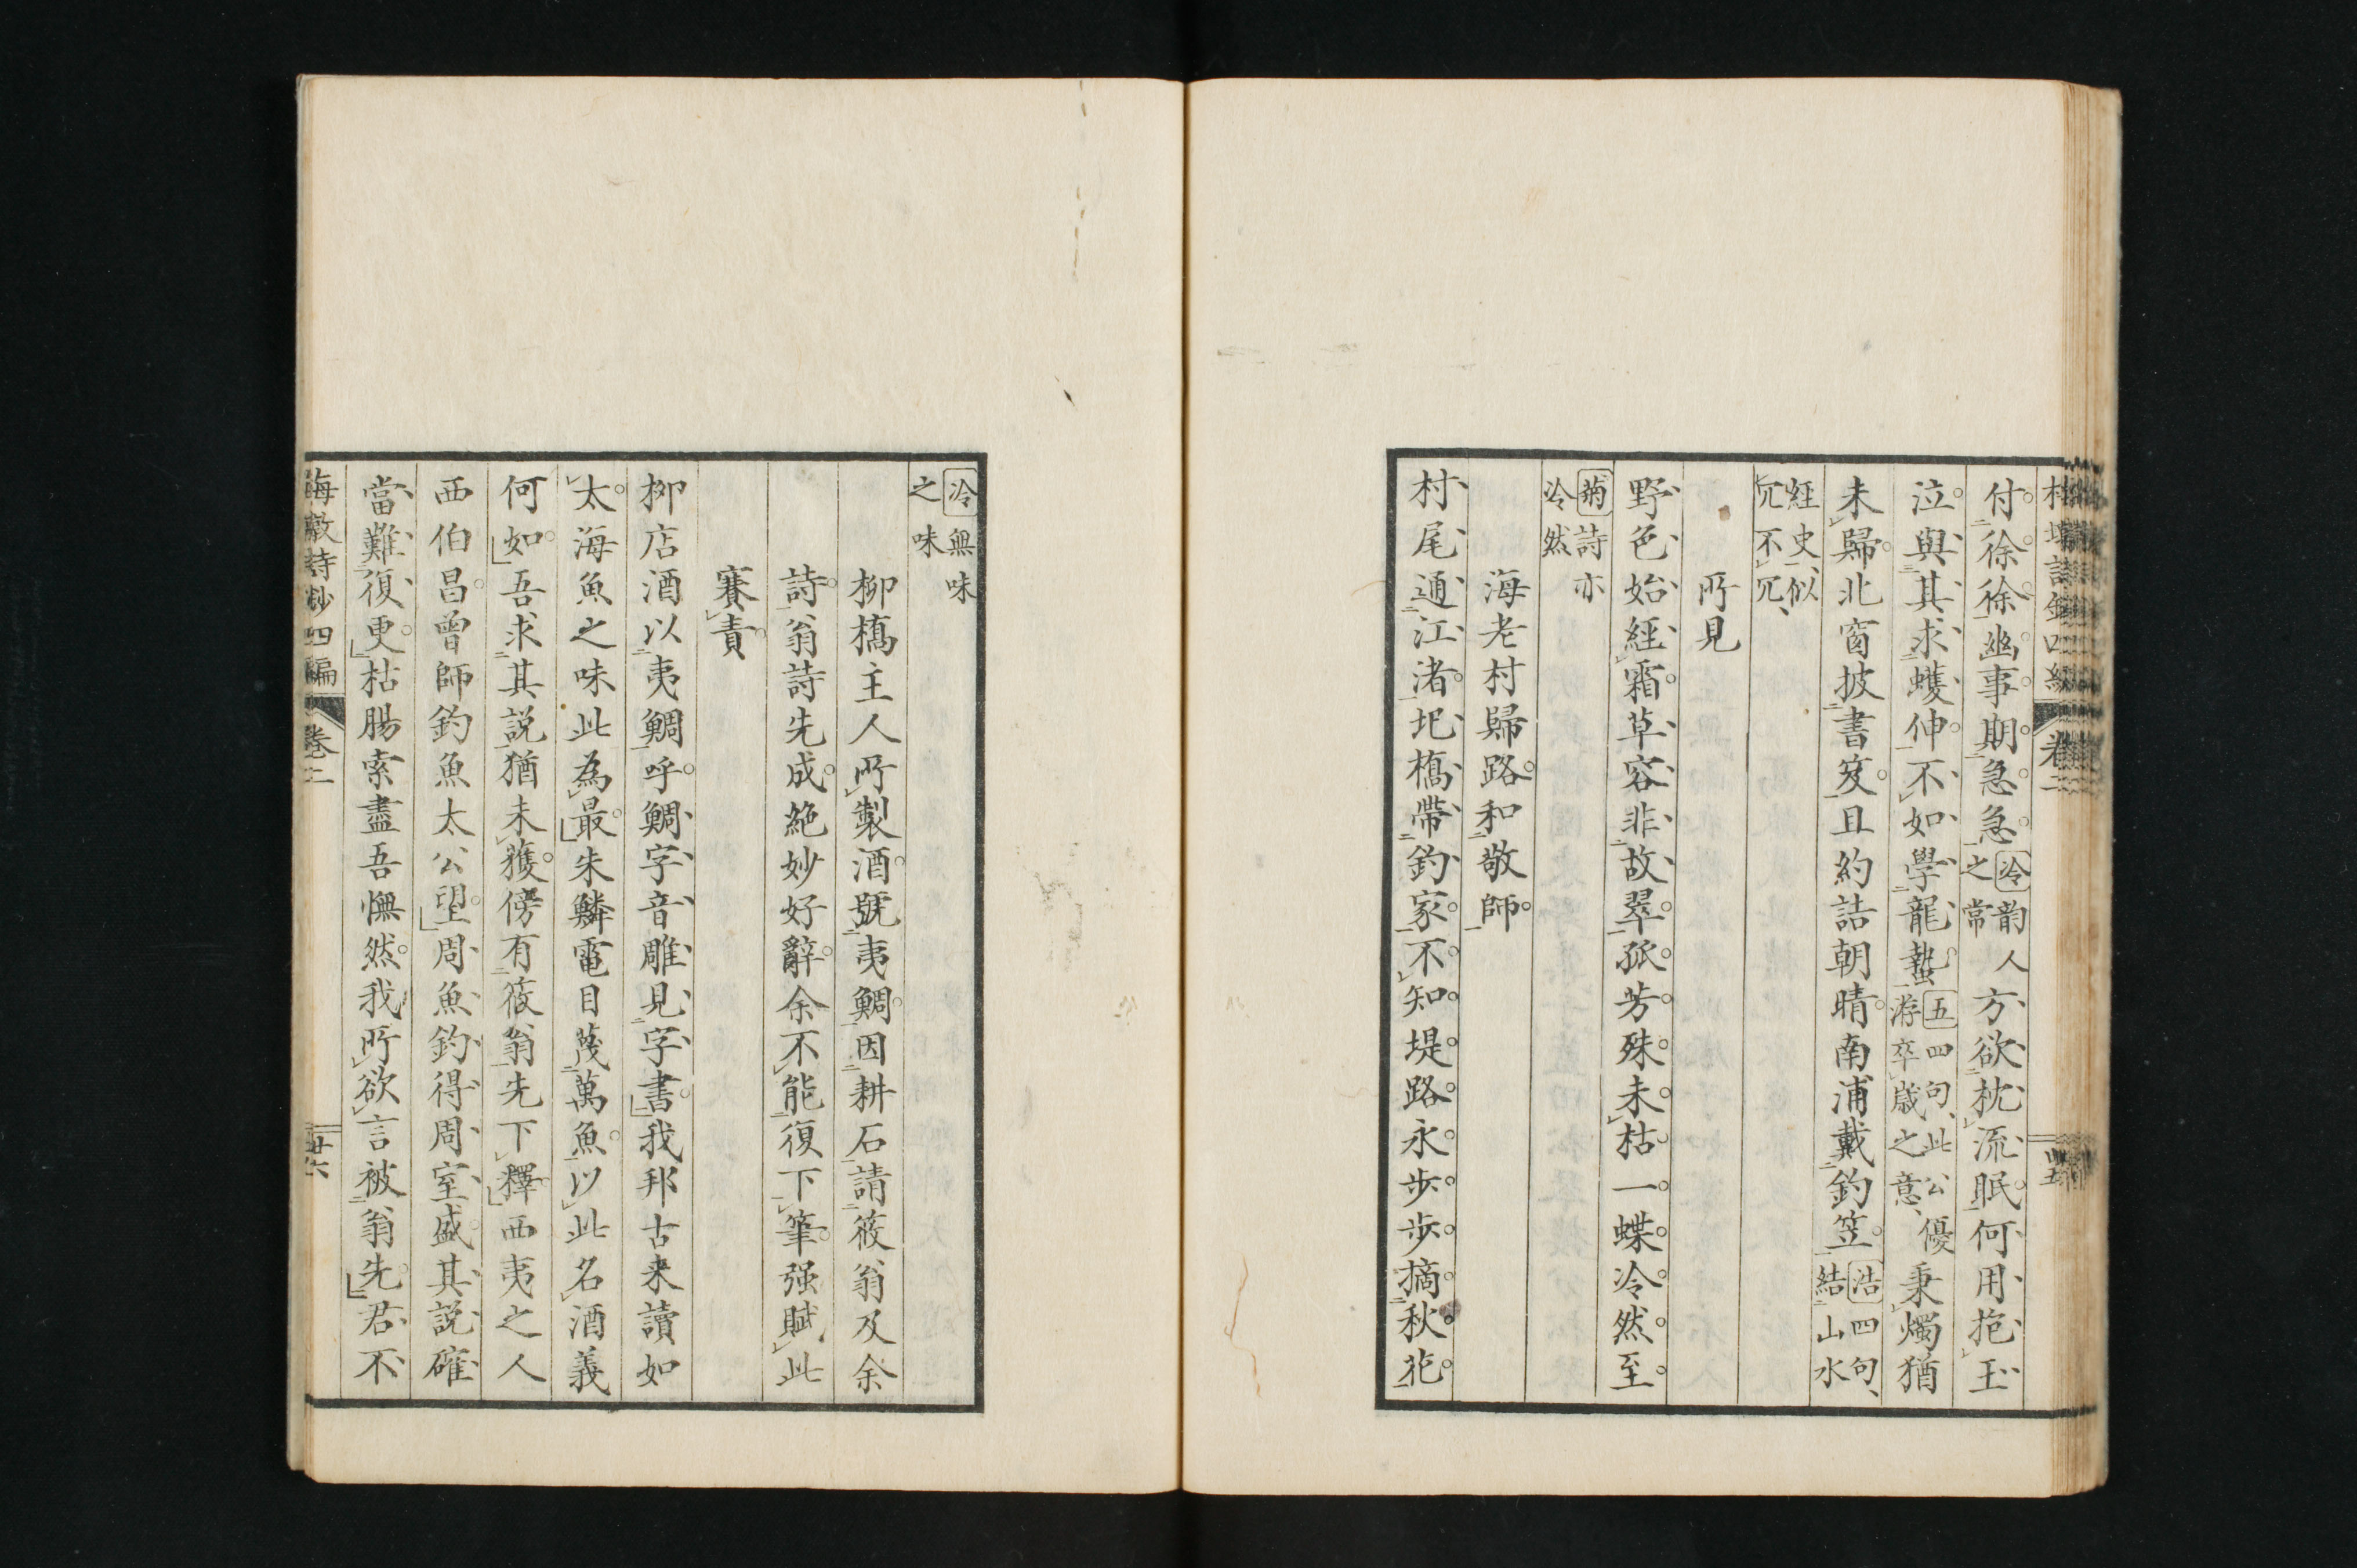 付徐徐幽事期急急冷韵人之常方欲枕流眠何用抱玉
泣與其求蠖伸不如學龍蟄五四句此公優游卒歳之意秉燭猶
未歸北窗披書笈且約詰朝晴南浦戴釣笠浩四句結山水
經史似冗不冗
所見
野色始經霜草容非故翠孤芳殊未枯一蝶冷然至
菊詩亦冷然
海老村歸路和敬師
村尾通江渚圯橋帶釣家不知堤路永步步摘秋花
冷無味之味
柳橋主人所製酒號夷鯛因耕石請筱翁及余
詩翁詩先成絶妙好辭余不能復下筆强賦此
賽責
柳店酒以夷鯛呼鯛字音雕見字書我邦古来讀如
太海魚之味此為最朱鱗電目蔑萬魚以此名酒義
何如吾求其説猶未獲傍有筱翁先下釋西夷之人
西伯昌曾師釣魚太公望周魚釣得周室盛其説確
當難復更枯腸索盡吾憮然我所欲言被翁先君不
海敝詩鈔四編 卷二 廿六